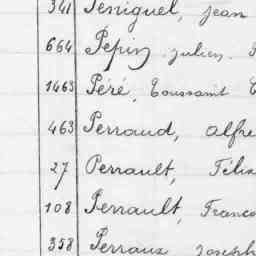 341 Péniguel, Jean
664 Pépin, Julien
1463 Péré, Toussaint
463 Perraud, Alfre
27 Perrault, Félix
108 Perrault, Franco
358 Perraux Joseph